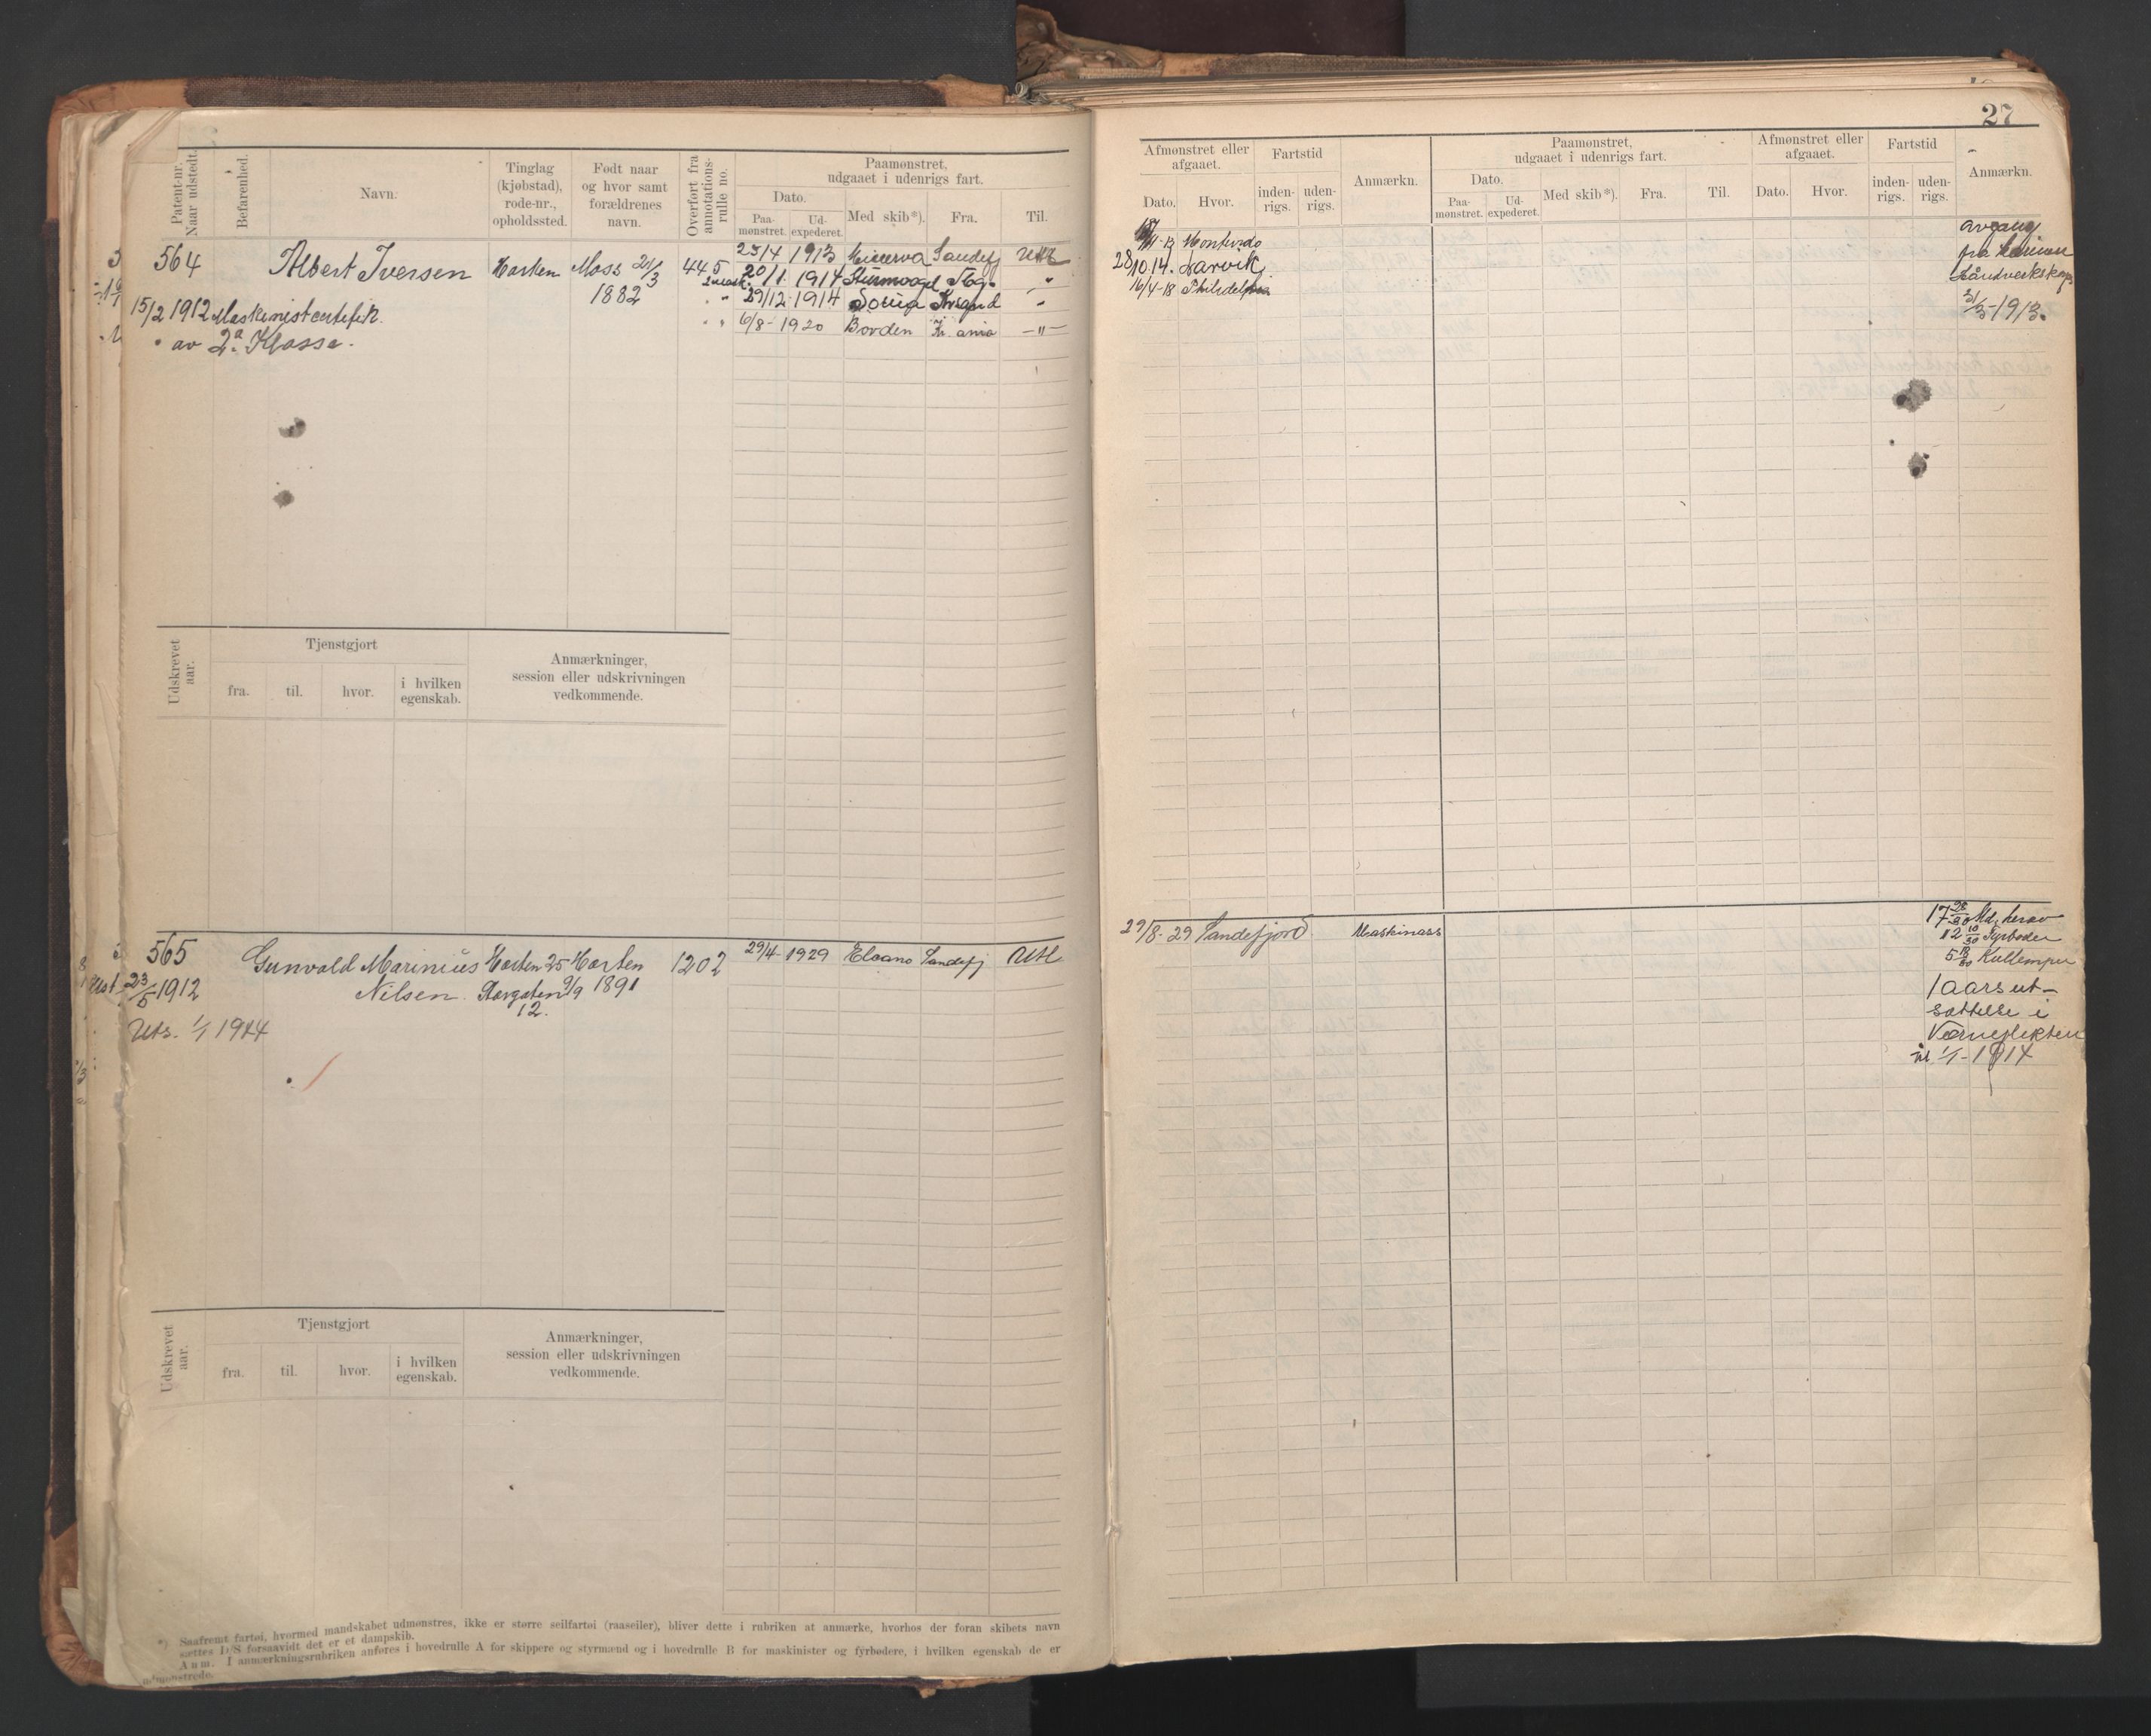 27
Patent-nr. Naar udstedt.
Befarenhed.
Navn.
Tinglag (kjøbstad), rode-nr., opholdssted.
Født naar og hvor samt forældrenes navn.
Overført fra annotations-rulle no.
Paamønstret, udgaaet i udenrigs fart.
Dato.
Paa-mønstret.
Ud-expederet.
Med skib*).
Fra.
Til.
Afmønstret eller afgaaet.
Dato.
Hvor.
Fartstid
inden-rigs.
uden-rigs.
Anmærkn.
Paamønstret, udgaaet i udenrigs fart.
Dato.
Paa-mønstret.
Ud-expederet.
Med skib*).
Fra.
Til.
Afmønstret eller afgaaet.
Dato.
Hvor.
Fartstid
inden-rigs.
uden-rigs.
Anmærkn.
564 Albert Iversen Horten Moss 21/3 1882 445
15/2 1912 Maskinistcertifik.
av 2a Klasse.
25/4 1913 Minerva Sandefj Utl
20/1 1914 Tbg. "
29/12 1914 Krsand "
6/8 - 1920 Borden Kr. ania - " -
11-13 Montevido
28/10.14. Larvik
16/4-18 Philidelphia
avgang
fra
31/3-1913.
Udskrevet aar.
Tjenstgjort
fra.
til.
hvor.
i hvilken egenskab.
Anmærkninger, session eller udskrivningen vedkommende.
565 Gunvald Marinius Horten 25 Horten 1202
Nilsen. Storgaten 9/9 1891
12.
Utst 23/5 1912
Uts. 1/1 1944
29/4 - 1929 Eloano Sandefj Utl
29/8 - 29 Sandefjord Maskinass
17 28/30 Md, herav
12 10/30 Fyrbøder
5 18/30 Kullemper
1 aars ut-
sættelse i
Værneplikten
til 1/1 - 1914
Udskrevet aar.
Tjenstgjort
fra.
til.
hvor.
i hvilken egenskab.
Anmærkninger, session eller udskrivningen vedkommende.
*) Saafremt fartøi, hvormed mandskabet udmønstres, ikke er større seilfartøi (raaseiler), bliver dette i rubriken at anmærke, hvorhos der foran skibets navn
sættes D/S forsaavidt det er et dampskib.
Anm. I anmærkningsrubriken anføres i hovedrulle A for skippere og styrmænd og i hovedrulle B for maskinister og fyrbødere, i hvilken egenskab de er
udmønstrede.